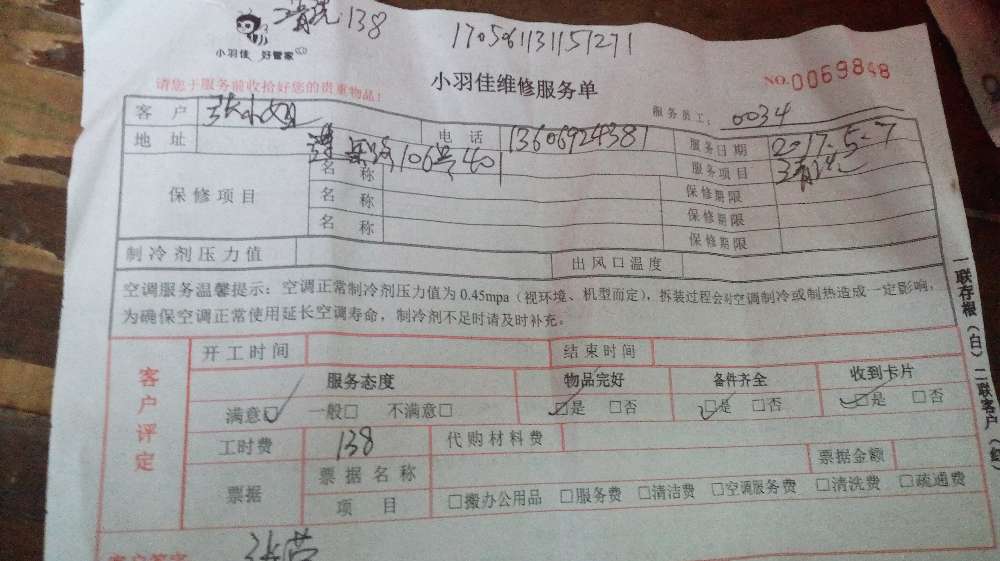 清洗:138
170506113115727​1
小羽佳 好管家
小羽佳维修服务单
NO.0069848
请您于服务前收拾好您的贵重物品!
服务员工: 0034
客户 张小姐 电话 13606924381 服务日期 2017.5.7
地址 106号401 服务项目 清洗
保修项目 名称 保修期限
名称 保修期限
名称 保修期限
制冷剂压力值 出风口温度
空调服务温馨提示:空调正常制冷剂压力值为0.45mpa(视环境、机型而定),拆装过程会对空调制冷或制热造成一定影响,
为确保空调正常使用延长空调寿命,制冷剂不足时请及时补充。
客户评定
开工时间 结束时间
服务态度 物品完好 备件齐全 收到卡片
满意☑ 一般□ 不满意□ ☑是 □否 ☑是 □否 ☑是 □否
工时费 138 代购材料费
票据 票据名称 票据金额
项目 □搬办公用品 □服务费 □清洁费 □空调服务费 □清洗费 □疏通费
客户签字 张劳
一联存根(白)二联客户(红